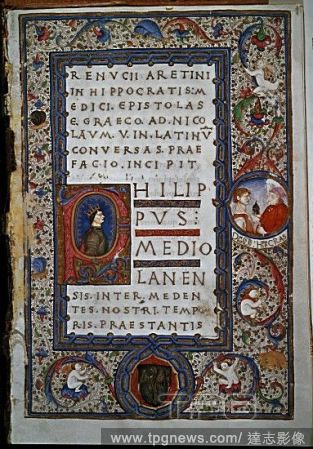 RENUCII ARETINI
IN HIPPOCRATIS: M
EDICI. EPISTOLAS
E. GRAECO. AD. NICO
LAVM. V. IN. LATINV̄
CONVERSAS. PRAE
FACIO. INCIPIT
PHILIP
PVS:
MEDIO
LANEN
SIS. INTER. MEDEN
TES. NOSTRI. TEMPO
RIS. PRAESTANTIS
TPG
www.tpgnews.com/ 達志影像